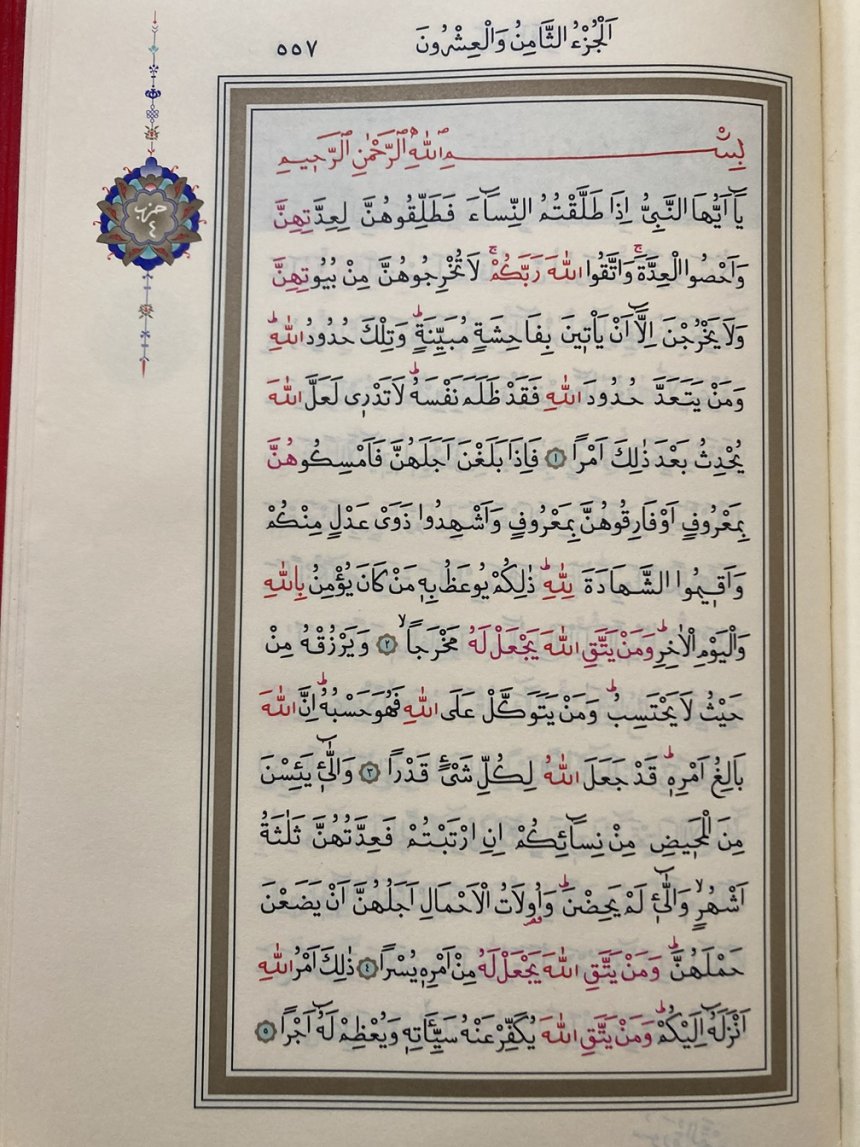 اَلْجُزْءُ الثَّامِنُ وَالْعِشْرُونَ
٥٥٧
حزب
٤
بِسْمِ اللّٰهِ الرَّحْمٰنِ الرَّحٖيمِ
يَٓا اَيُّهَا النَّبِيُّ اِذَا طَلَّقْتُمُ النِّسَٓاءَ فَطَلِّقُوهُنَّ لِعِدَّتِهِنَّ
وَاَحْصُوا الْعِدَّةَۚ وَاتَّقُوا اللّٰهَ رَبَّكُمْۚ لَا تُخْرِجُوهُنَّ مِنْ بُيُوتِهِنَّ
وَلَا يَخْرُجْنَ اِلَّٓا اَنْ يَأْتٖينَ بِفَاحِشَةٍ مُبَيِّنَةٍؕ وَتِلْكَ حُدُودُ اللّٰهِؕ
وَمَنْ يَتَعَدَّ حُدُودَ اللّٰهِ فَقَدْ ظَلَمَ نَفْسَهُؕ لَا تَدْرٖى لَعَلَّ اللّٰهَ
يُحْدِثُ بَعْدَ ذٰلِكَ اَمْرًا ﴿١﴾ فَاِذَا بَلَغْنَ اَجَلَهُنَّ فَاَمْسِكُوهُنَّ
بِمَعْرُوفٍ اَوْ فَارِقُوهُنَّ بِمَعْرُوفٍ وَاَشْهِدُوا ذَوَىْ عَدْلٍ مِنْكُمْ
وَاَقٖيمُوا الشَّهَادَةَ لِلّٰهِؕ ذٰلِكُمْ يُوعَظُ بِهٖ مَنْ كَانَ يُؤْمِنُ بِاللّٰهِ
وَالْيَوْمِ الْاٰخِرِؕ وَمَنْ يَتَّقِ اللّٰهَ يَجْعَلْ لَهُ مَخْرَجًاۙ ﴿٢﴾ وَيَرْزُقْهُ مِنْ
حَيْثُ لَا يَحْتَسِبُؕ وَمَنْ يَتَوَكَّلْ عَلَى اللّٰهِ فَهُوَ حَسْبُهُؕ اِنَّ اللّٰهَ
بَالِغُ اَمْرِهٖؕ قَدْ جَعَلَ اللّٰهُ لِكُلِّ شَىْءٍ قَدْرًا ﴿٣﴾ وَالّٰٓـٖٔى يَئِسْنَ
مِنَ الْمَحٖيضِ مِنْ نِسَٓائِكُمْ اِنِ ارْتَبْتُمْ فَعِدَّتُهُنَّ ثَلٰثَةُ
اَشْهُرٍۙ وَالّٰٓـٖٔى لَمْ يَحِضْنَؕ وَاُولَاتُ الْاَحْمَالِ اَجَلُهُنَّ اَنْ يَضَعْنَ
حَمْلَهُنَّؕ وَمَنْ يَتَّقِ اللّٰهَ يَجْعَلْ لَهُ مِنْ اَمْرِهٖ يُسْرًا ﴿٤﴾ ذٰلِكَ اَمْرُ اللّٰهِ
اَنْزَلَهُٓ اِلَيْكُمْؕ وَمَنْ يَتَّقِ اللّٰهَ يُكَفِّرْ عَنْهُ سَيِّـَٔاتِهٖ وَيُعْظِمْ لَهُٓ اَجْرًا ﴿٥﴾